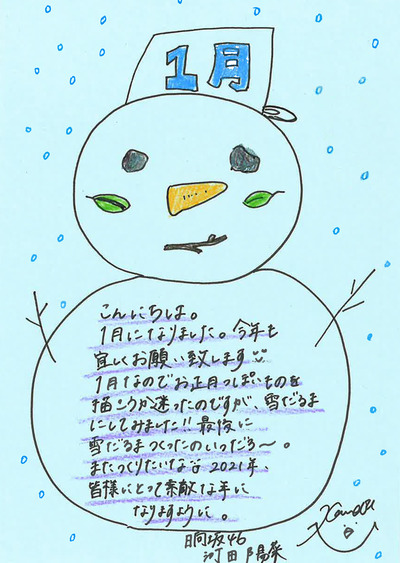 1月
こんにちは。
1月になりました。今年も
宜しくお願い致します
1月なのでお正月っぽいものを
描こうか迷ったのですが、雪だるま
にしてみました!!最後に
雪だるまつくったのいつだろ〜。
またつくりたいな 2021年、
皆様にとって素敵な年に
なりますように。
日向坂46
河田陽菜